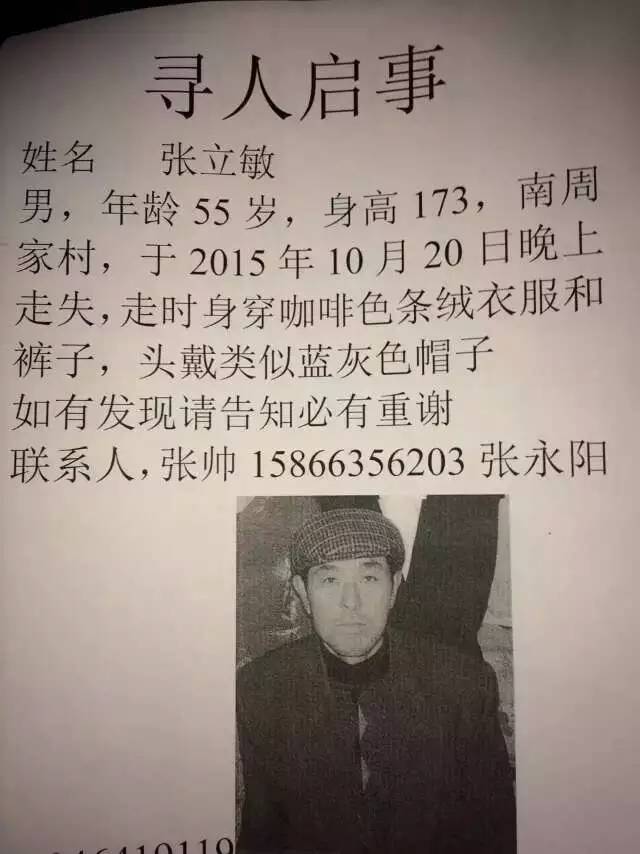 寻人启事
姓名 张立敏
男，年龄 55 岁，身高 173，南周
家村，于 2015 年 10 月 20 日晚上
走失，走时身穿咖啡色条绒衣服和
裤子，头戴类似蓝灰色帽子
如有发现请告知必有重谢
联系人，张帅 15866356203 张永阳